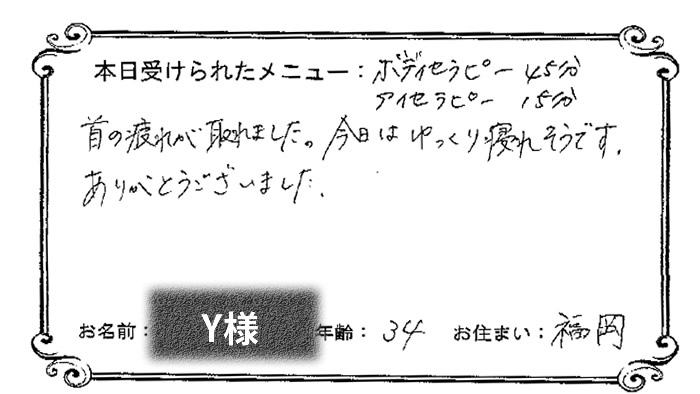 本日受けられたメニュー：ボディセラピー 45分
アイセラピー 15分
首の疲れが取れました。今日はゆっくり寝れそうです。
ありがとうございました。
お名前：Y様 年齢：34 お住まい：福岡